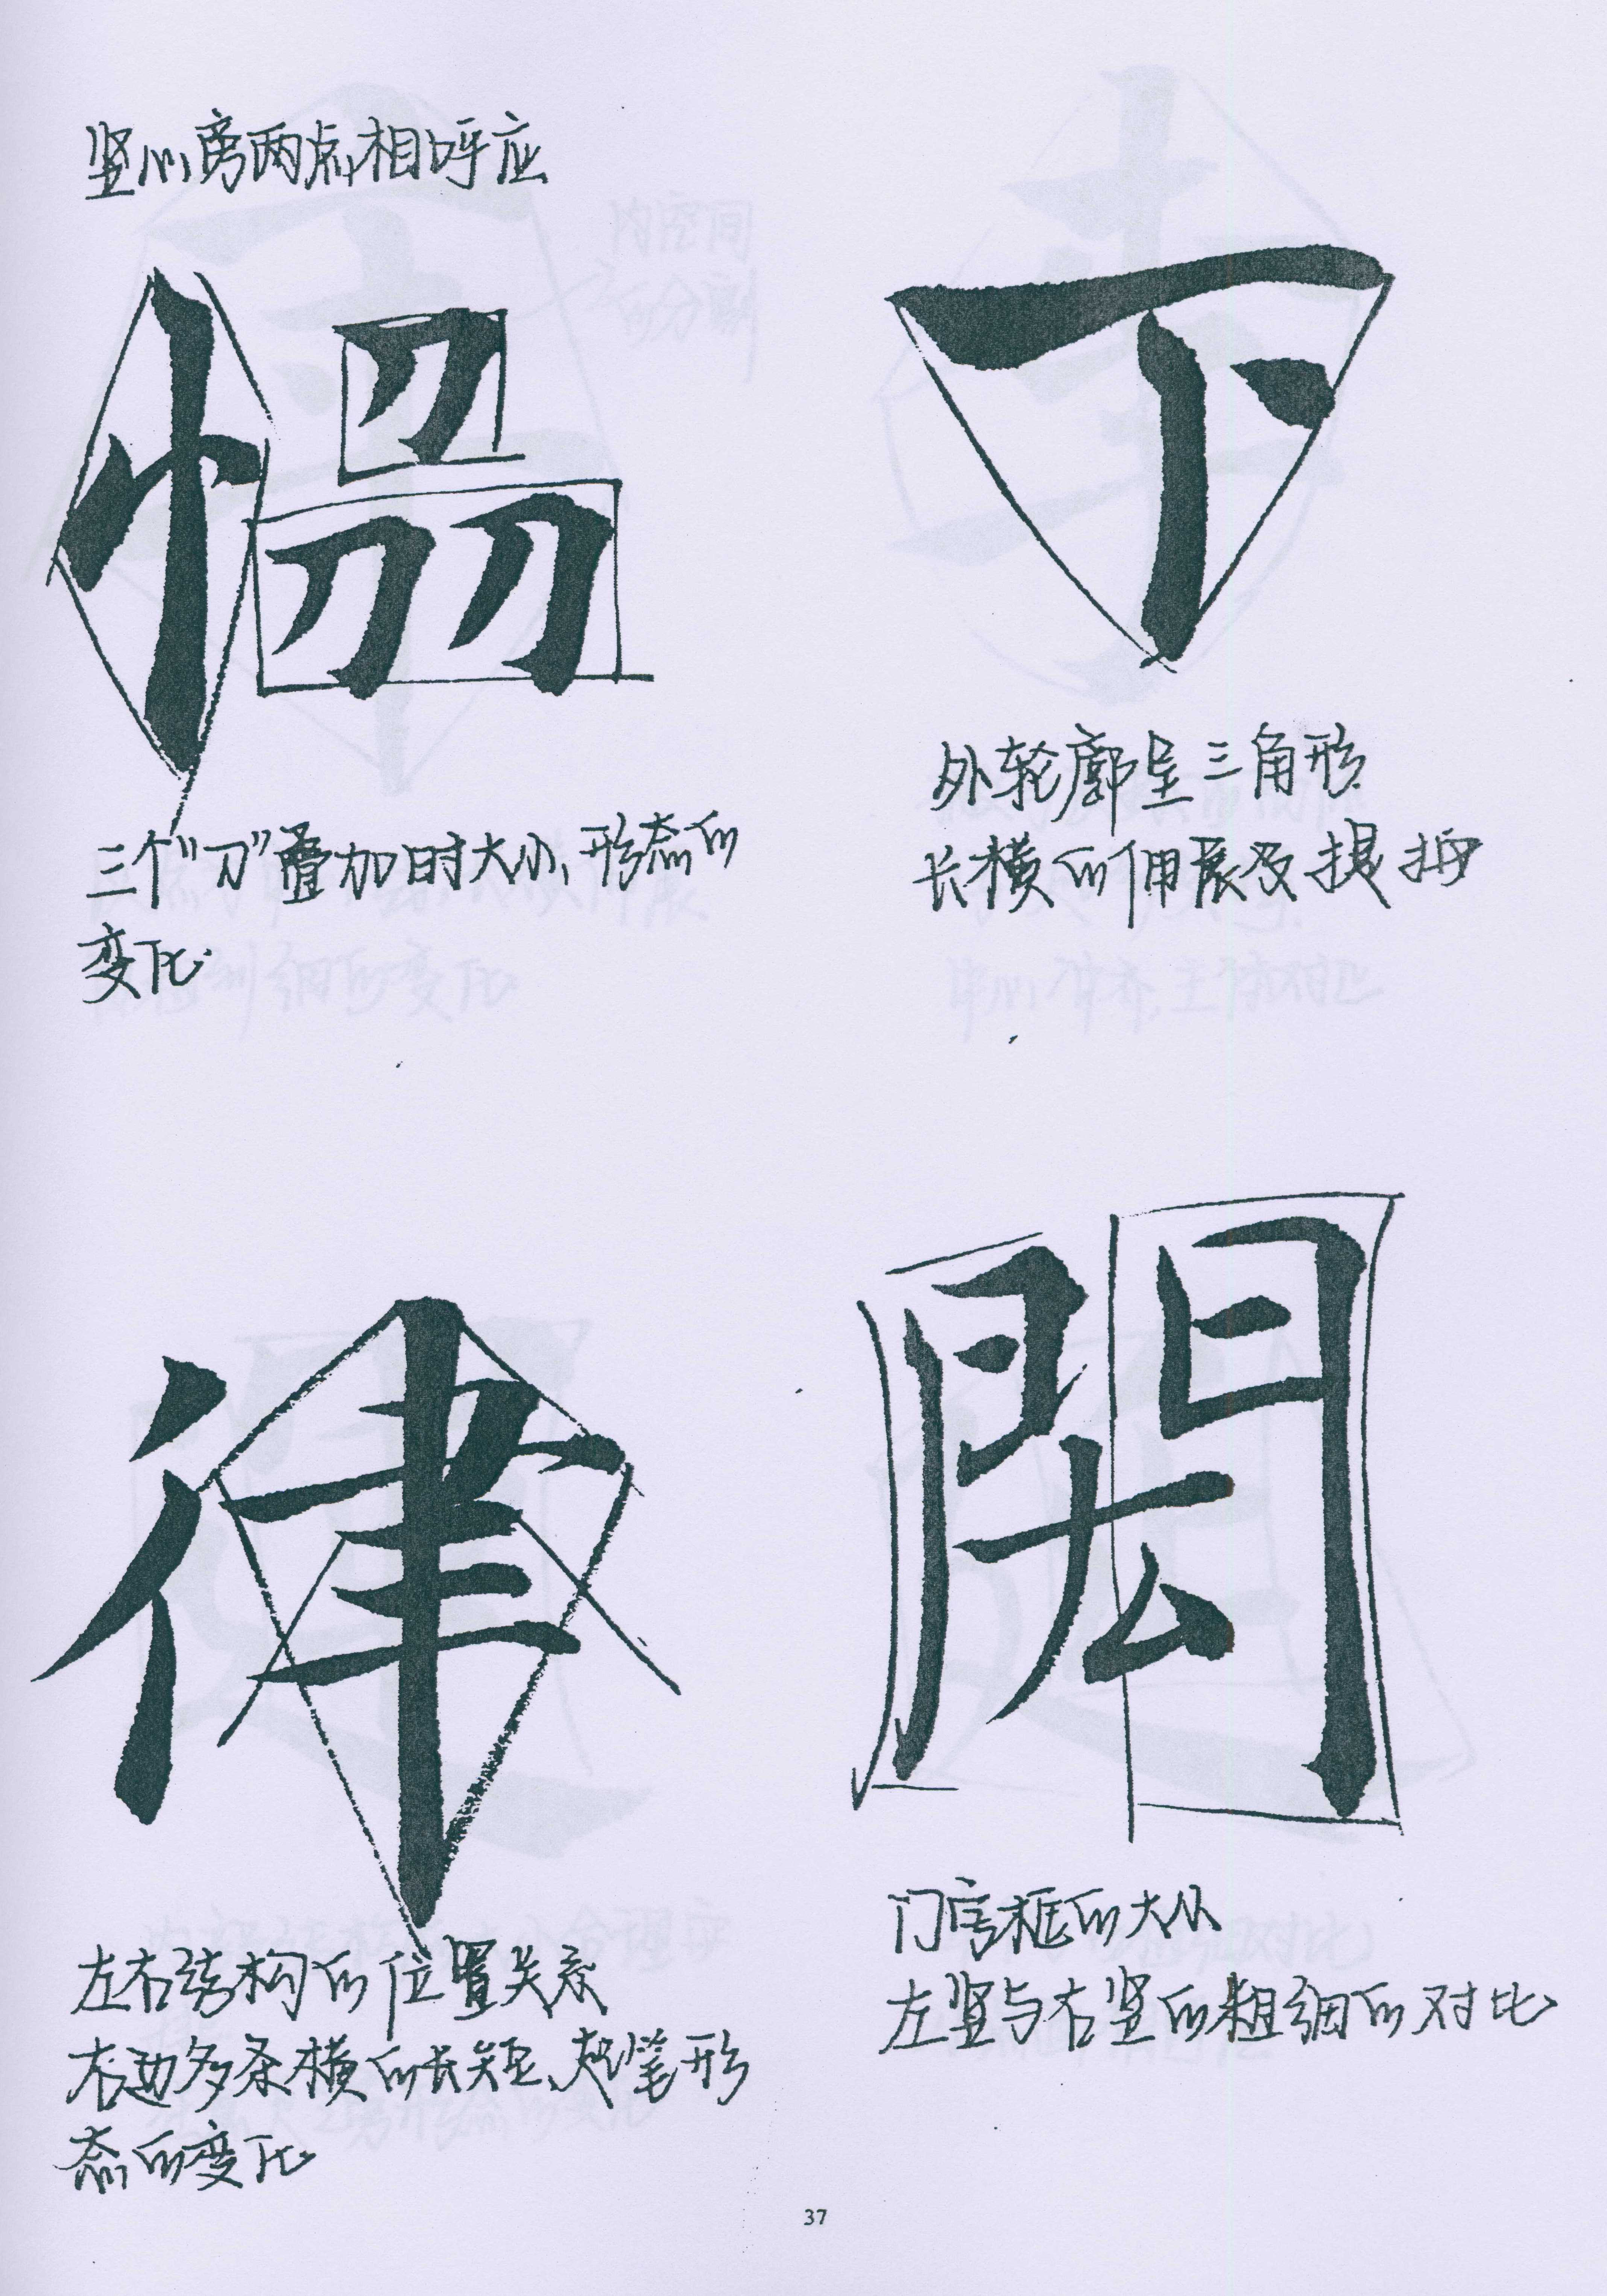 竖心旁两点相呼应
恊
三个“刀”叠加时大小、形态的
变化
下
外轮廓呈三角形
长横的伸展及提按
律
左右结构的位置关系
右边多条横的长短、起笔形
态的变化
閎
门字框的大小
左竖与右竖的粗细的对比
37